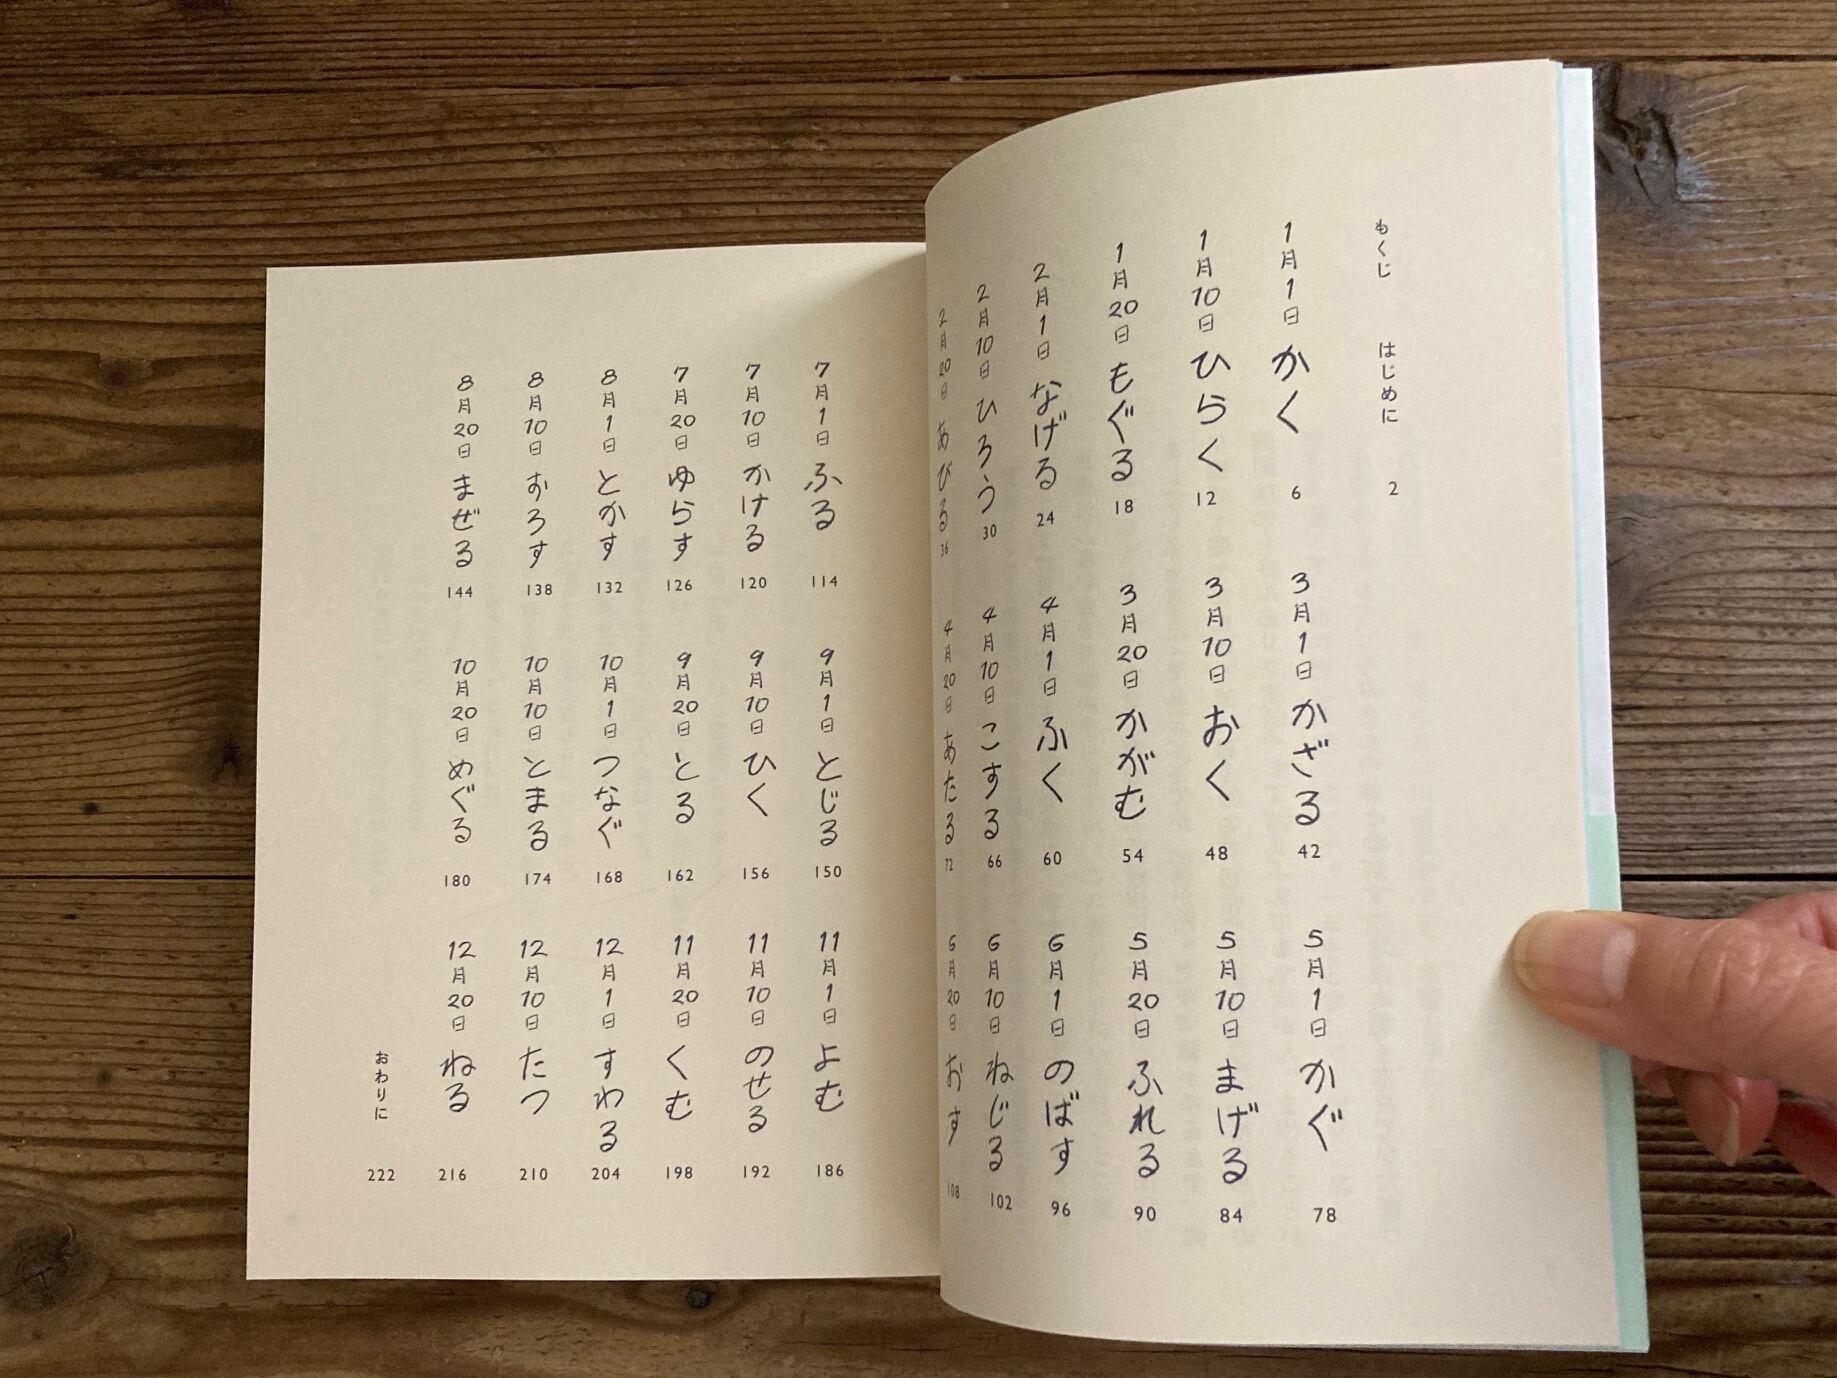 もくじ
はじめに 2
1月1日 かく 6
1月10日 ひらく 12
1月20日 もぐる 18
2月1日 なげる 24
2月10日 ひろう 30
2月20日 あびる 36
3月1日 かざる 42
3月10日 おく 48
3月20日 かがむ 54
4月1日 ふく 60
4月10日 こする 66
4月20日 あたる 72
5月1日 かぐ 78
5月10日 まげる 84
5月20日 ふれる 90
6月1日 のばす 96
6月10日 ねじる 102
6月20日 おす 108
7月1日 ふる 114
7月10日 かける 120
7月20日 ゆらす 126
8月1日 とかす 132
8月10日 おろす 138
8月20日 まぜる 144
9月1日 とじる 150
9月10日 ひく 156
9月20日 とる 162
10月1日 つなぐ 168
10月10日 とまる 174
10月20日 めぐる 180
11月1日 よむ 186
11月10日 のせる 192
11月20日 くむ 198
12月1日 すわる 204
12月10日 たつ 210
12月20日 ねる 216
おわりに 222